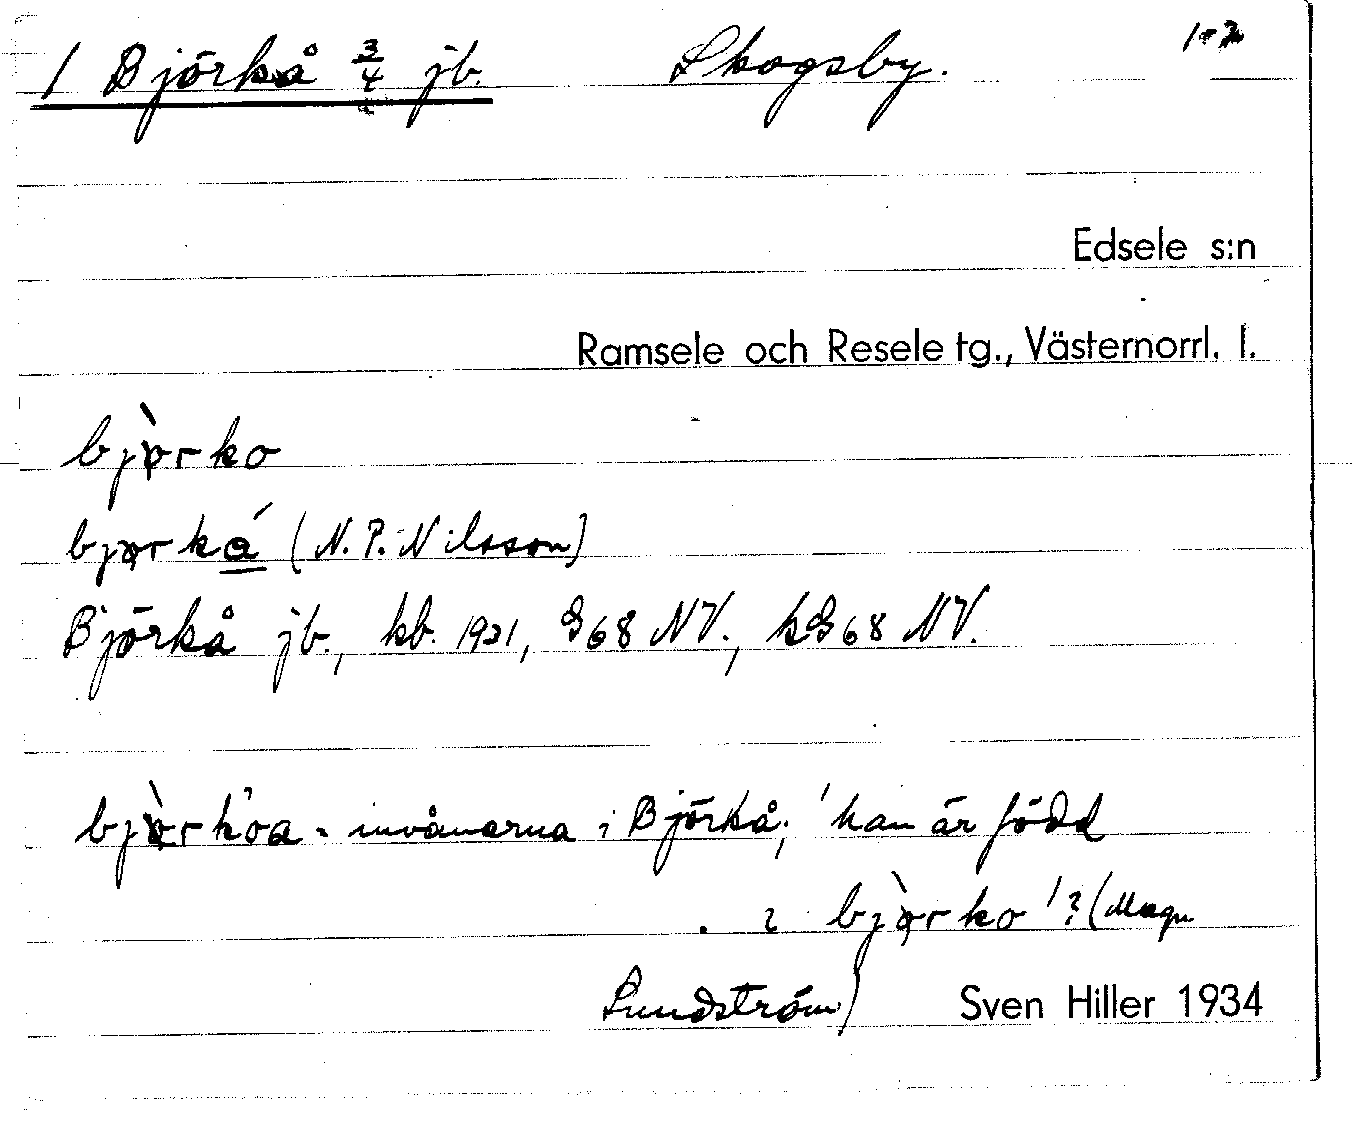 1 Björkå 3/4 jb. Skogsby. 1-2
Edsele s:n
Ramsele och Resele tg., Västernorrl. l.
bjòrko
bjorká (N. P. Nilsson)
Björkå jb., kb. 1921, G68 NV., kG68 NV.
bjòrkoa = invånarna i Björkå; 'han är född
i bjòrko'? (Magn
Lundström) Sven Hiller 1934